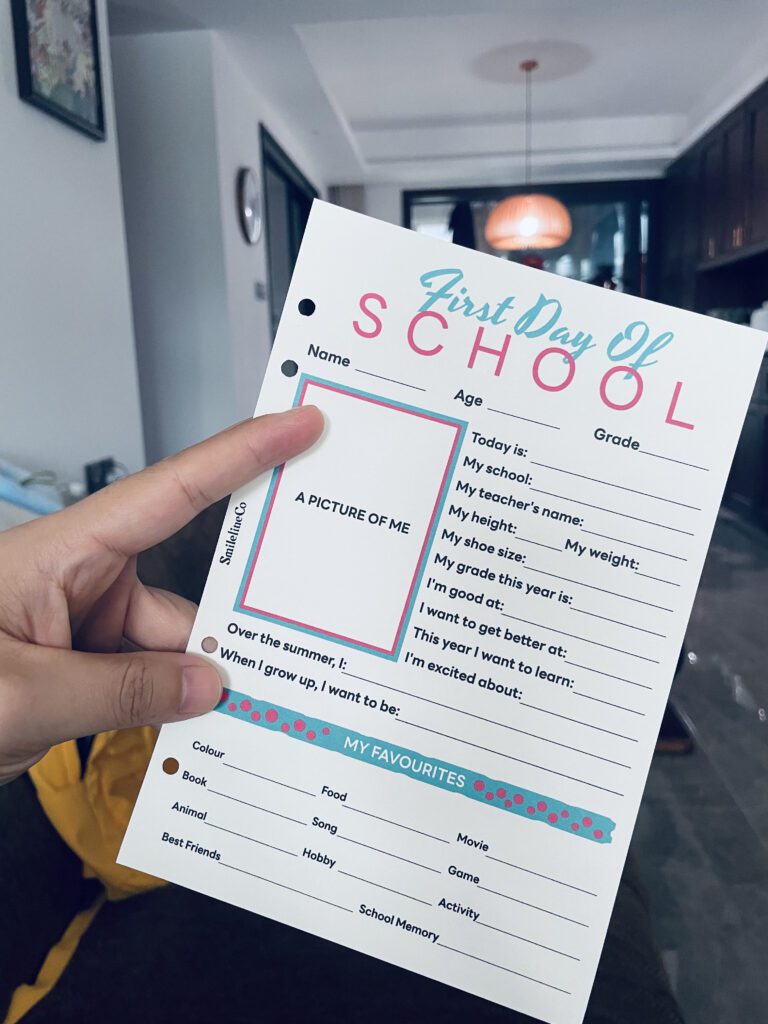 First Day Of
SCHOOL
Name Age Grade
A PICTURE OF ME
SmilelineCo
Today is:
My school:
My teacher's name:
My height: My weight:
My shoe size:
My grade this year is:
I'm good at:
I want to get better at:
This year I want to learn:
I'm excited about:
Over the summer, I:
When I grow up, I want to be:
MY FAVOURITES
Colour Food Movie
Book Song Game
Animal Hobby Activity
Best Friends School Memory